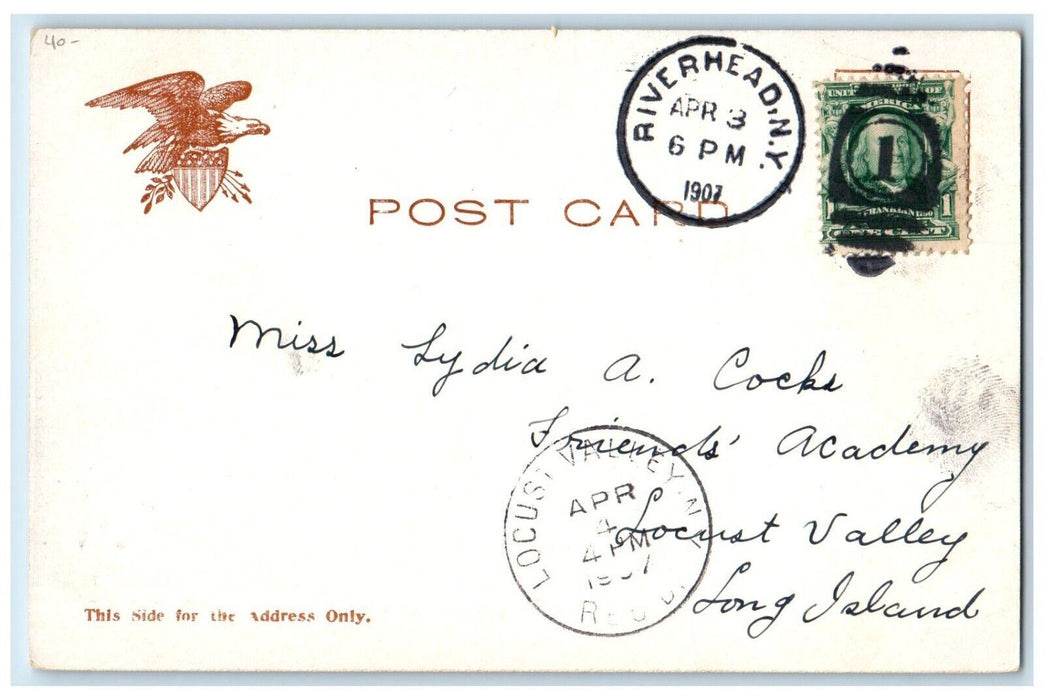 40-
RIVERHEAD, N.Y.
APR 3
6 PM
1907
UNITED STATES OF
AMERICA
1
FRANKLIN
ONE CENT
1
POST CARD
Miss Lydia A. Cocks
Friends' Academy
Locust Valley
Long Island
LOCUST VALLEY, N.Y.
APR
4
4 PM
1907
REC'D.
This Side for the Address Only.